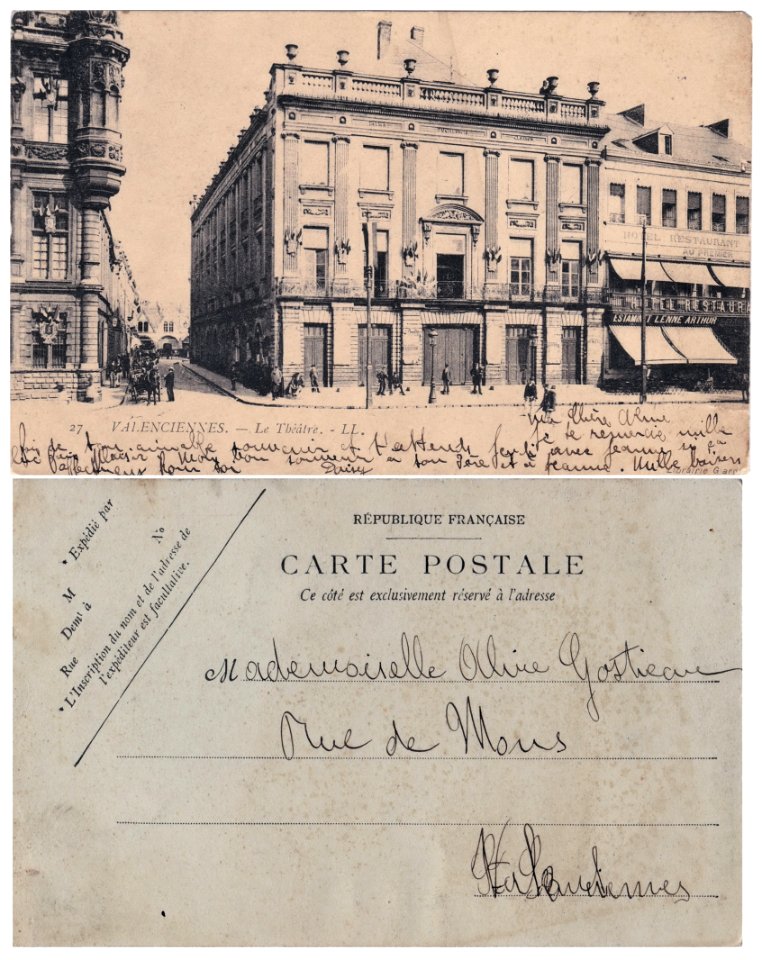 HOTEL RESTAURANT
AU PREMIER
HOTEL RESTAURA
ESTAMINET LENNE ARTHUR
27 VALENCIENNES. — Le Théâtre. - LL.
Ma chère Alire
je te remercie mille
fois de ton aimable souvenir et t'attends lundi avec jeanne si ça
plaisir bonjour a ton père et a jeanne. Mille baisers
affectueux pour toi
Librairie Giard
RÉPUBLIQUE FRANÇAISE
CARTE POSTALE
Ce côté est exclusivement réservé à l'adresse
* Expédié par
M
No
Demt à
Rue
* L'Inscription du nom et de l'adresse de
l'expéditeur est facultative.
Mademoiselle Alire
Rue de Mons
Valenciennes